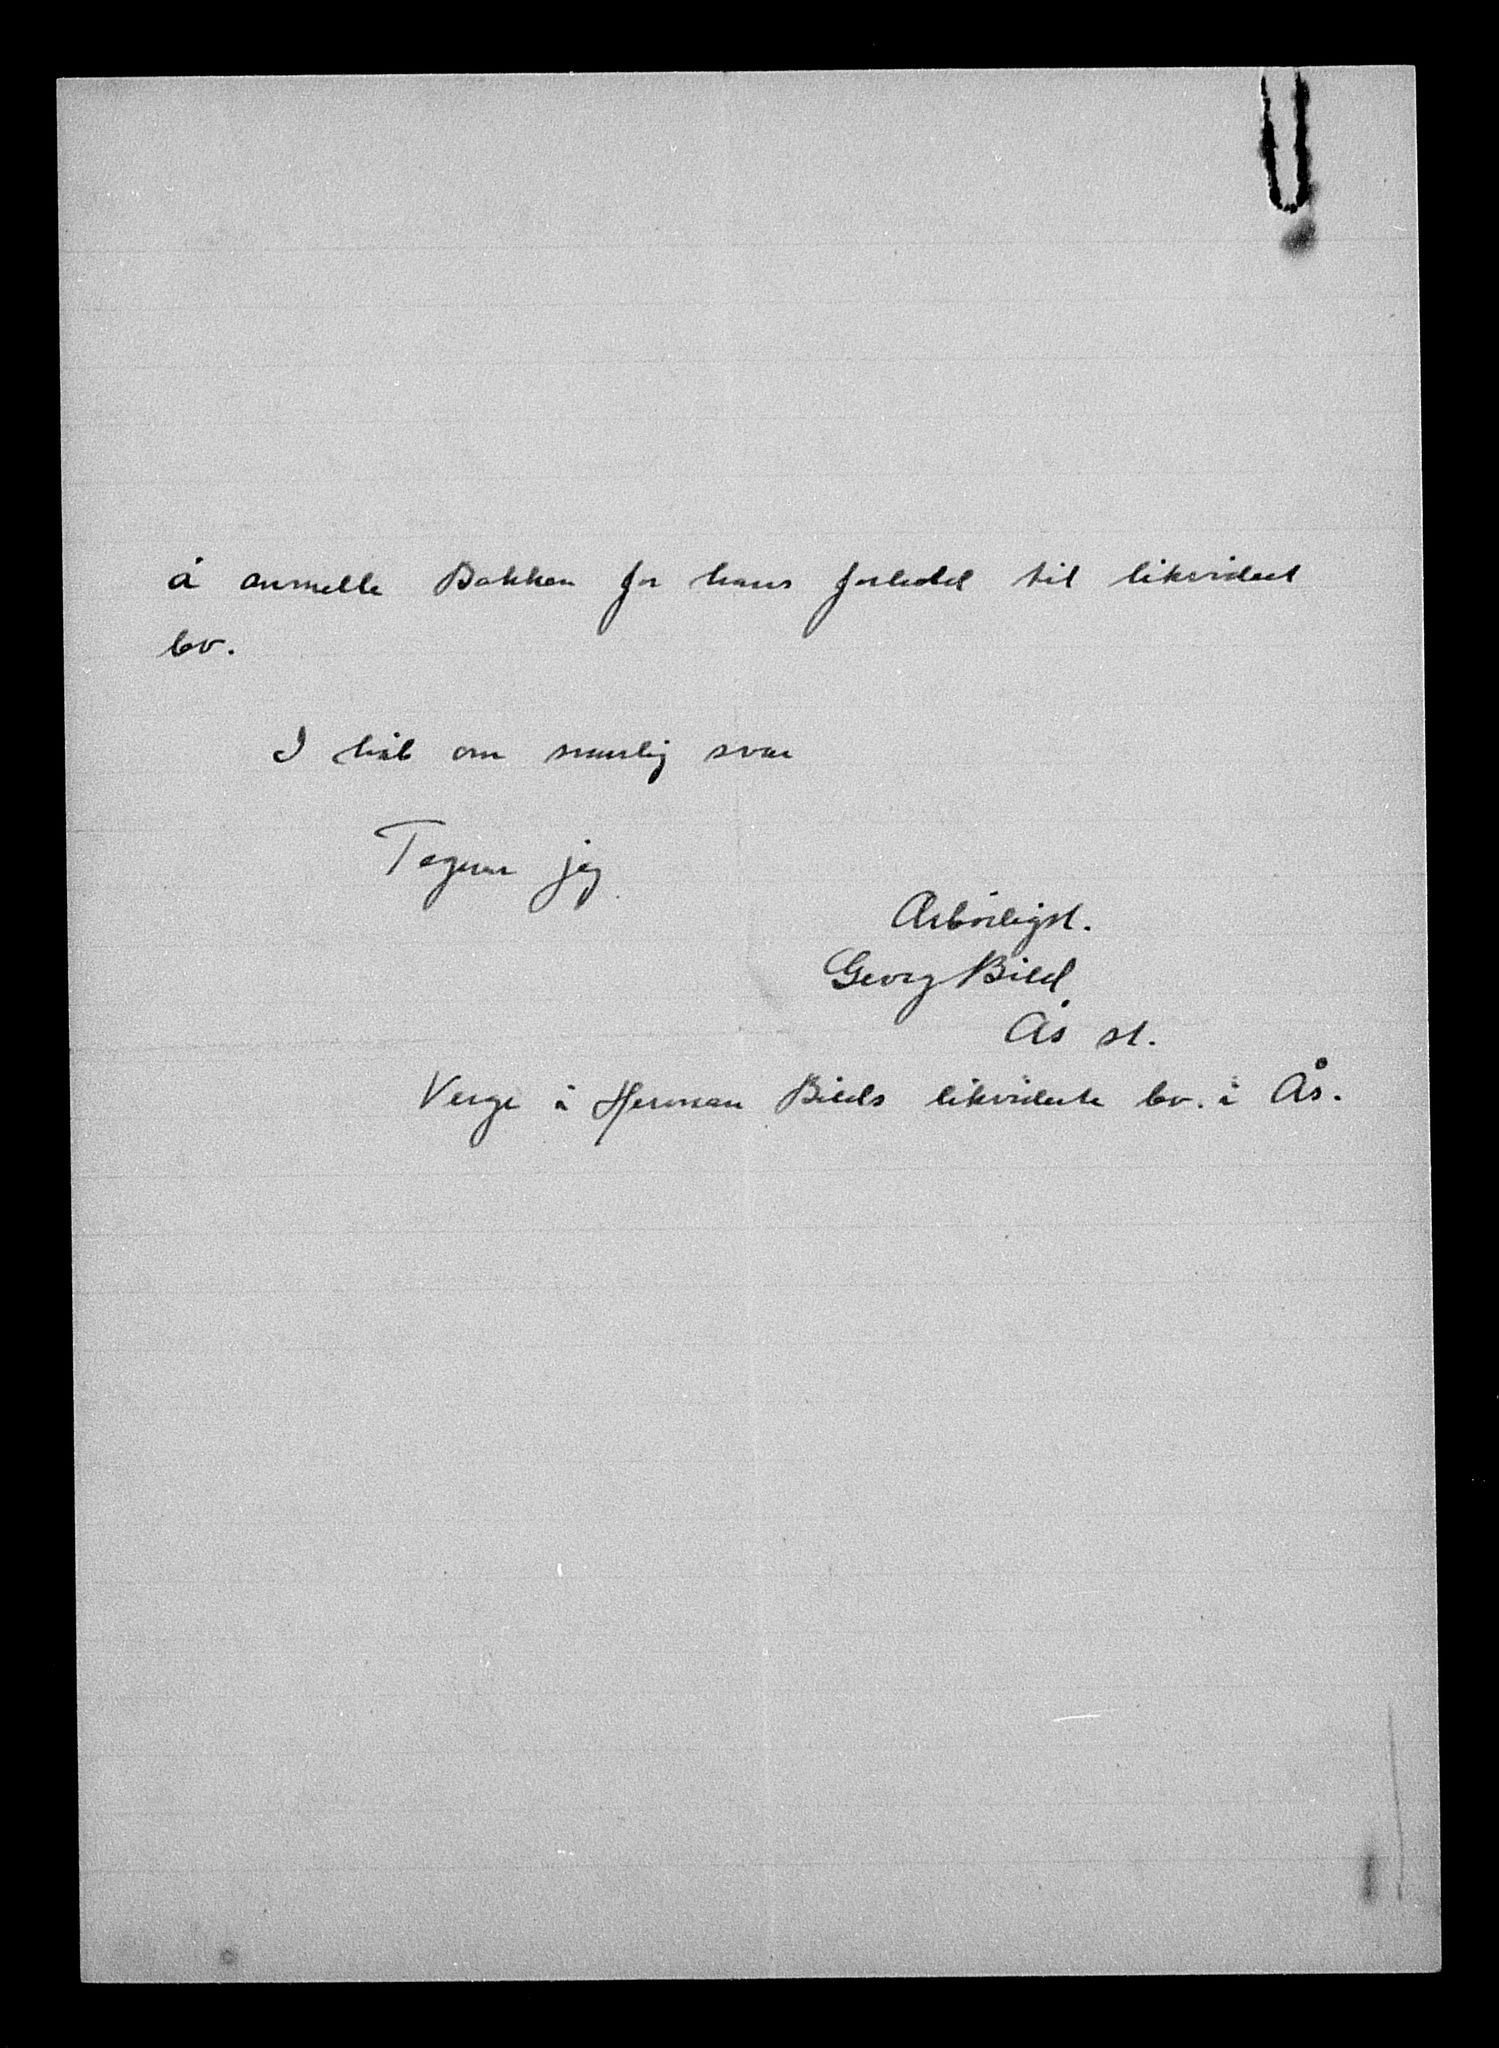 å anmelle Bakken for hans forhold til likvidert
bo.
I håb om snarlig svar
Tegner jeg
Ærbødigst.
Georg Bild
Ås st.
Verge i Herman Bilds likviderte bo. i Ås.